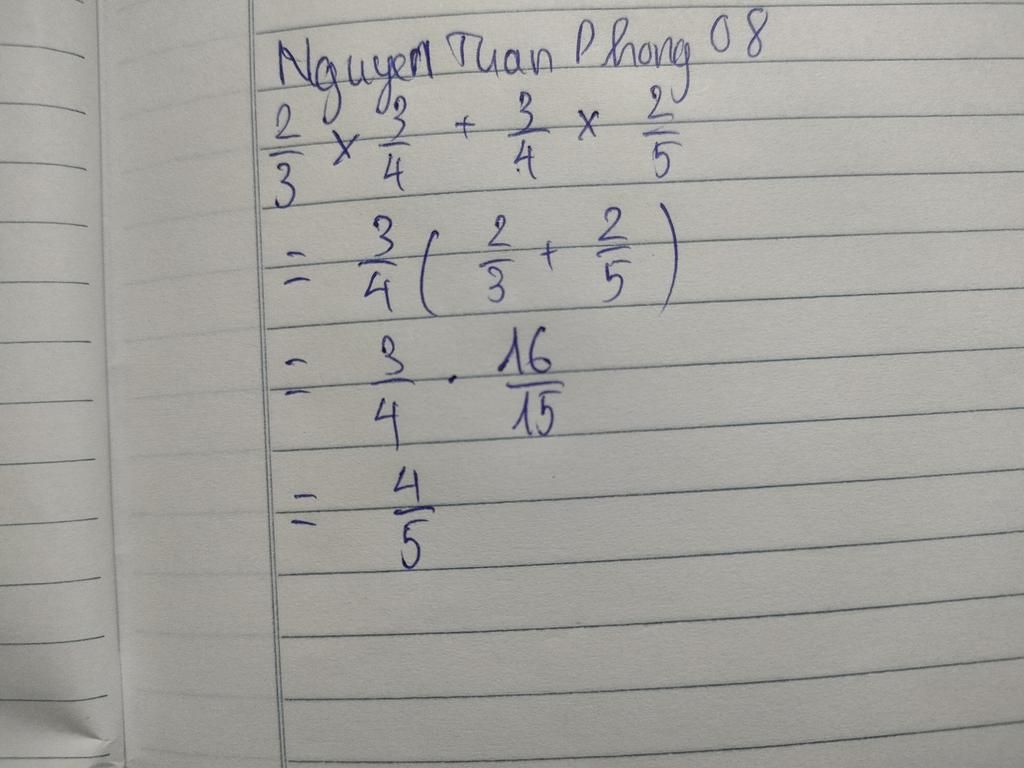 Nguyen Tuan Phong 08
2/3 × 3/4 + 3/4 × 2/5
= 3/4 ( 2/3 + 2/5 )
= 3/4 . 16/15
= 4/5